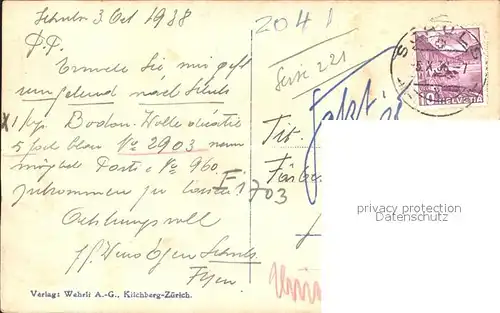 Schuls 3 Oct 1938
P.P.
Ersuche Sie mir gefl
umgehend nach Schuls
1 kg Bodan-Wolle
5 fach blau No 2903 wenn
möglich Partie No 960
zukommen zu lassen
Achtungsvoll
Schuls
2041
Serie 221
I 1703
Tit.
Färbe
SCHULS
10 HELVETIA
privacy protection
Datenschutz
Verlag: Wehrli A.-G., Kilchberg-Zürich.